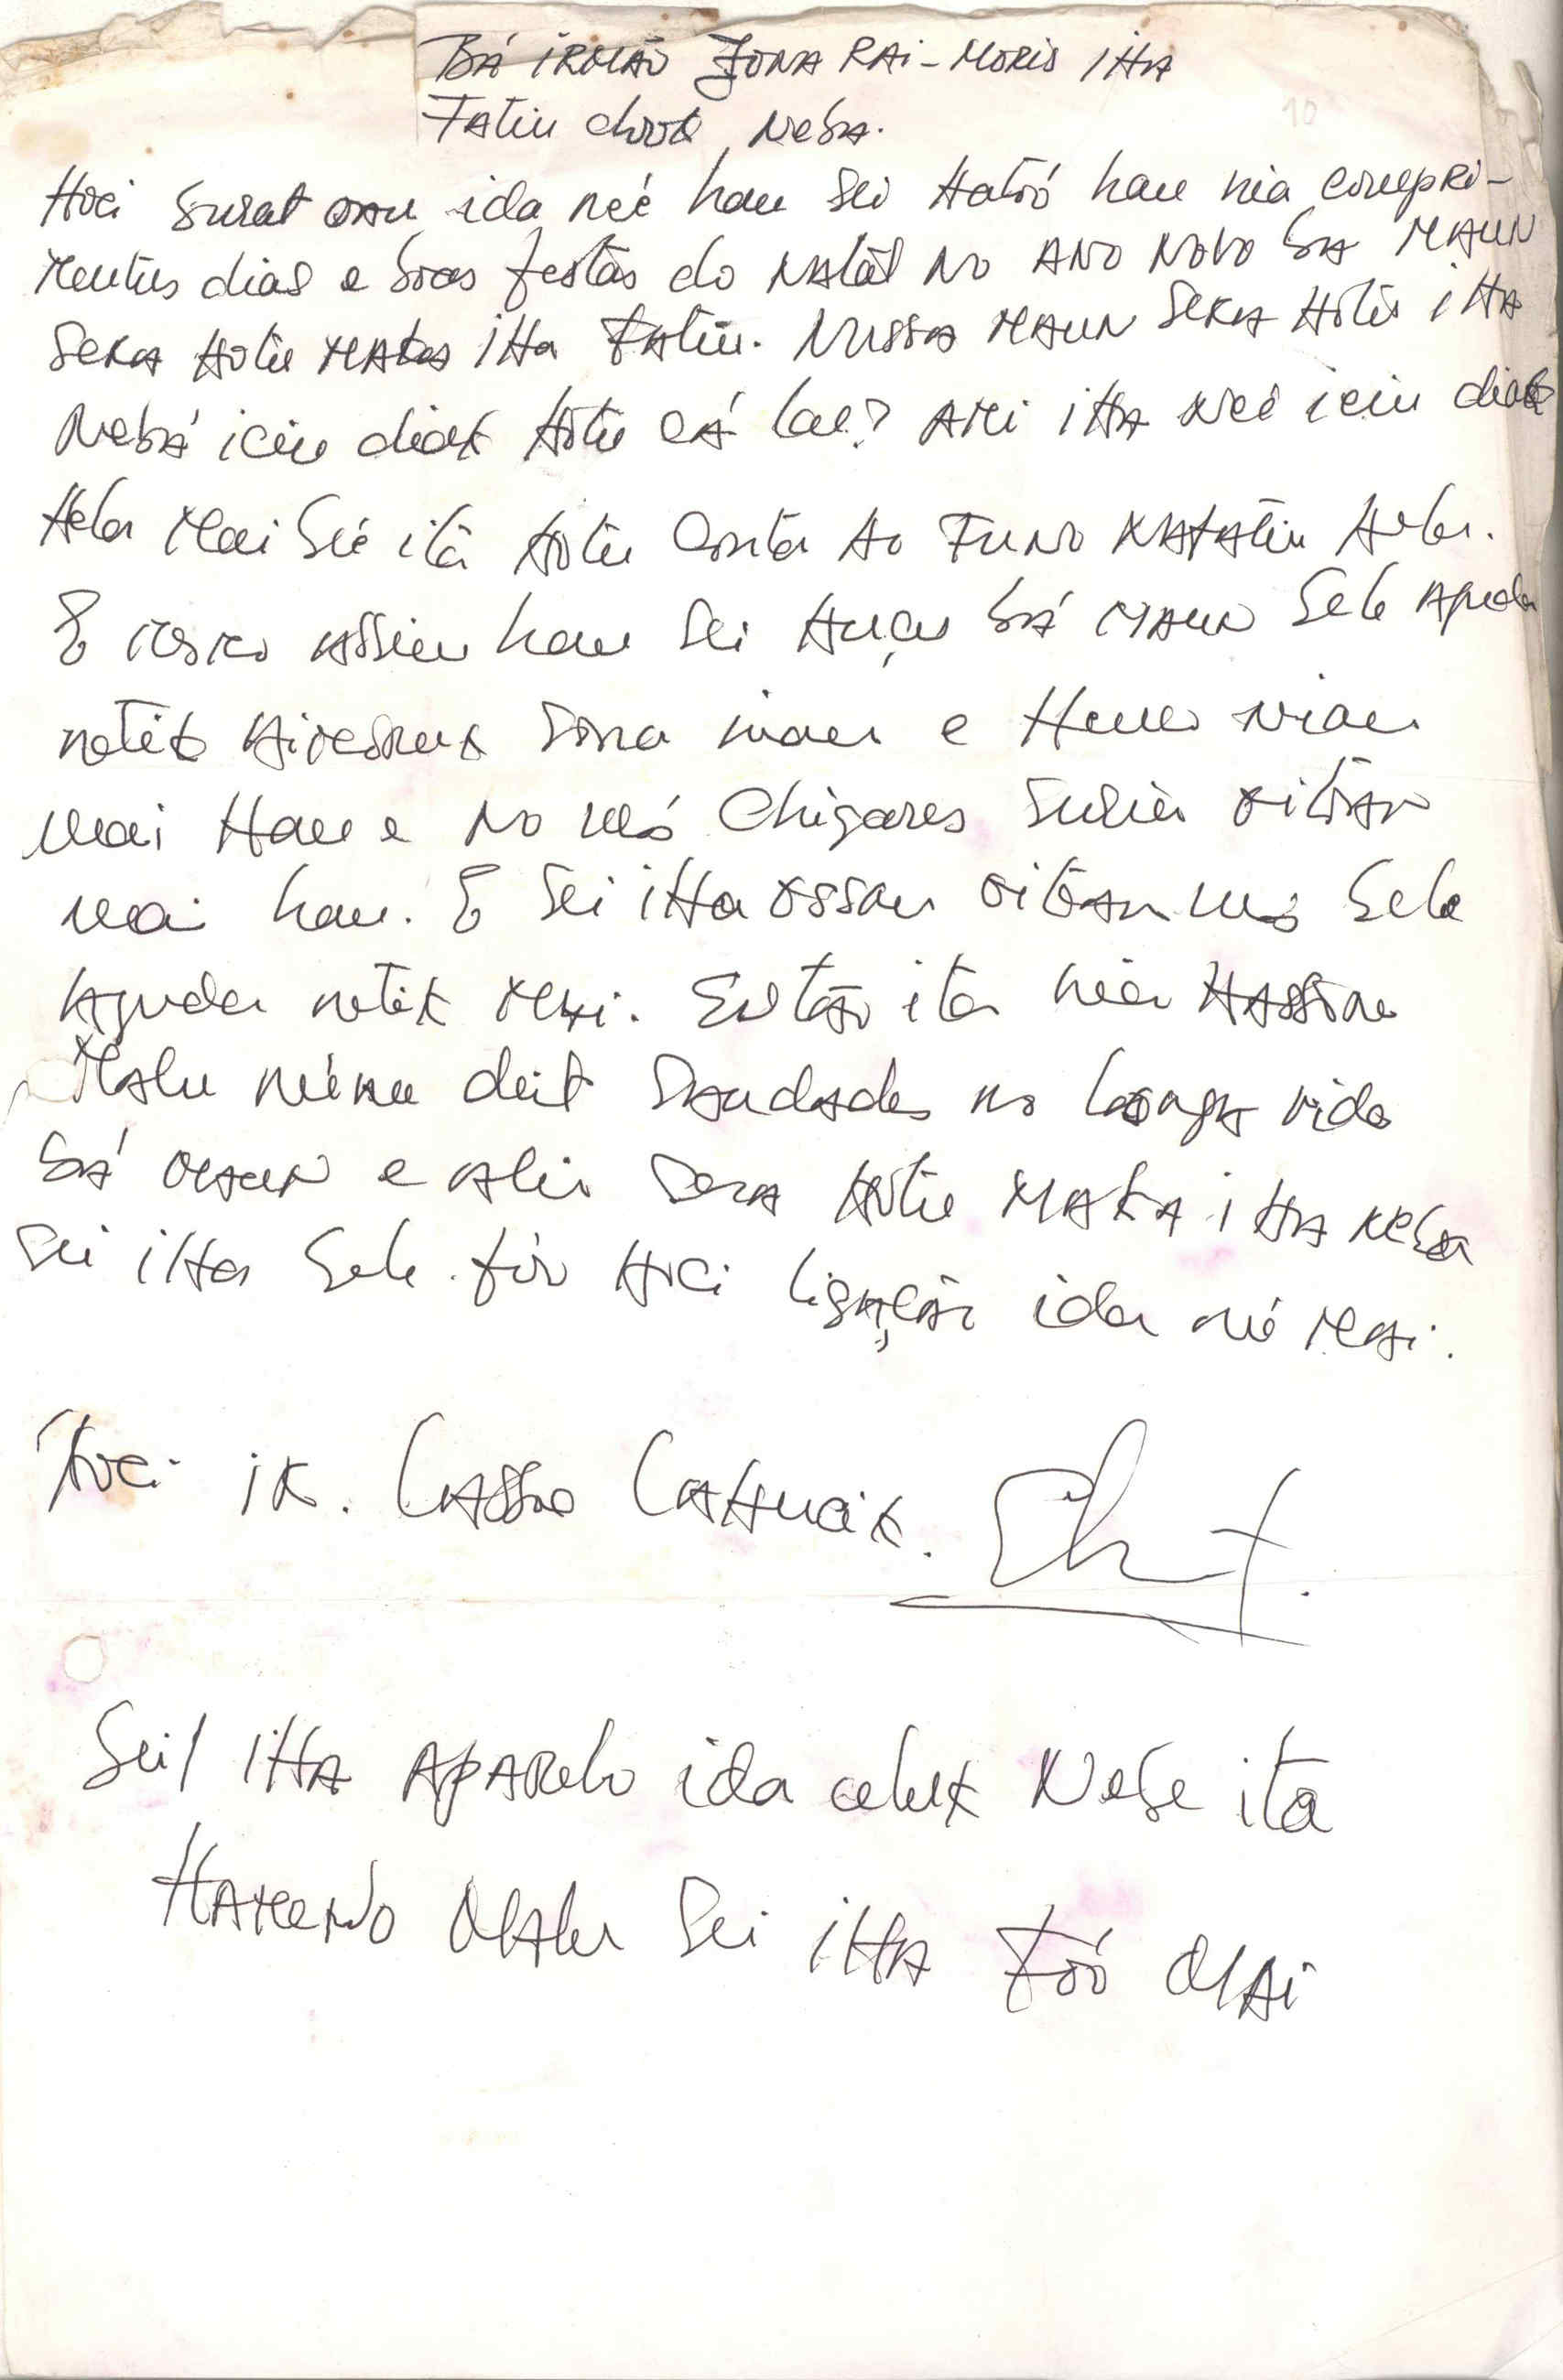 BÁ IRMÃO ZONA RAI-MORIS IHA
Fatin dook NEBA.
Hoci surat oan ida neé hau sei Hatóó hau nia compri-
mentus dias e boas festas do NATAL NO ANO NOVO BA MAUN
SERA Hotu MAKA IHA FATIN. NUSSA MAUN SERA Hotu IHA
Nebá icin diak Hotu cá lae? AMI IHA neé icin diak
Hela mai bé ita Hotu conta Ho FUNO NAFATIN Hela.
E assim hau sei Huçu bá MAUN Sele ajuda
netik sona inan e Humo nian
mai Hau e no mós chigares Suria oitoan
mai hau. E sei iHa ossan oitoan mós Sele
Ajuda netik mai. Então ita nia Hassoru
Malu neénu deit SAUDADES no Longa vida
bá MAUN e alin SERA Hotu MAKA IHA NEBA
Sei iHa Sele fóo Hoci ligação ida né mai.
Hoci ir. LASSO LAHUCIK.
Sei IHA APARELO ida NEBE ita
HAMENO MALU Sei IHA Fóó MAI